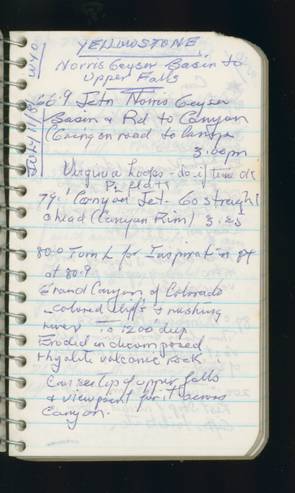 YELLOWSTONE
WYO
JULY 11/8
Norris Geyser Basin to
Upper Falls
66.9 Jctn Norris Geyser
Basin & Rd to Canyon
(Going on road to
3:00pm
Virginia - do if time ok
79. Canyon Jct. Go straight
ahead (Canyon Rim) 3:25
80.0 Turn L for Inspiration Pt
at 80.9
Grand Canyon of Colorado
colored cliffs & rushing
river is 1200 deep
Eroded in decomposed
rhyolite volcanic rock.
Can see top of upper falls
& viewpoint for it across
Canyon.